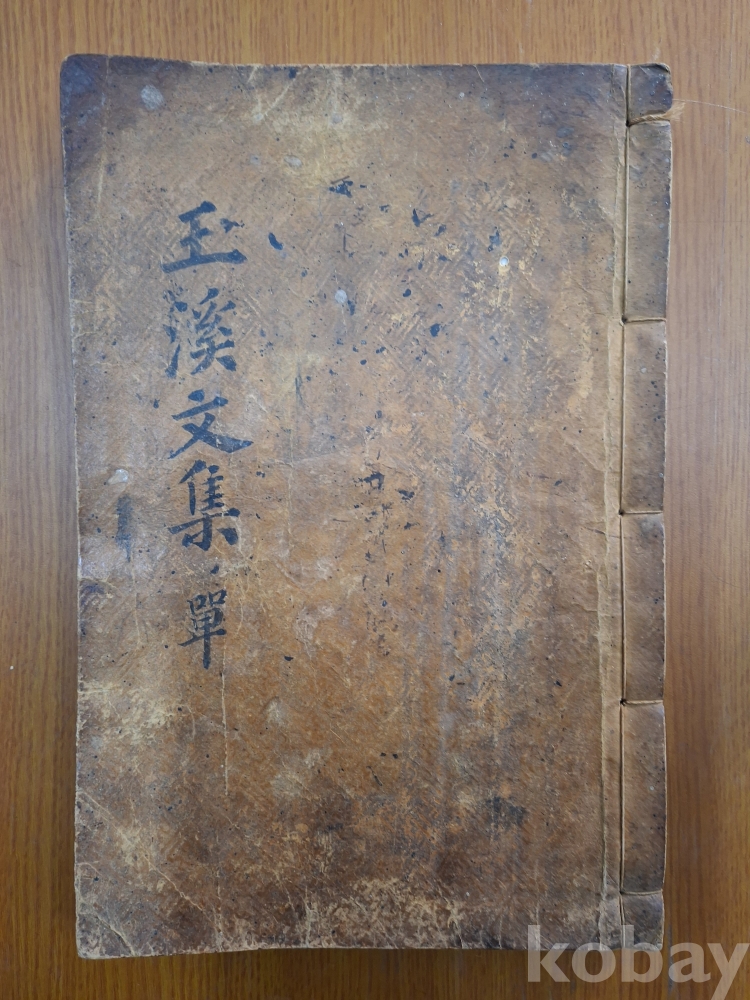 玉溪文集 單
kobay